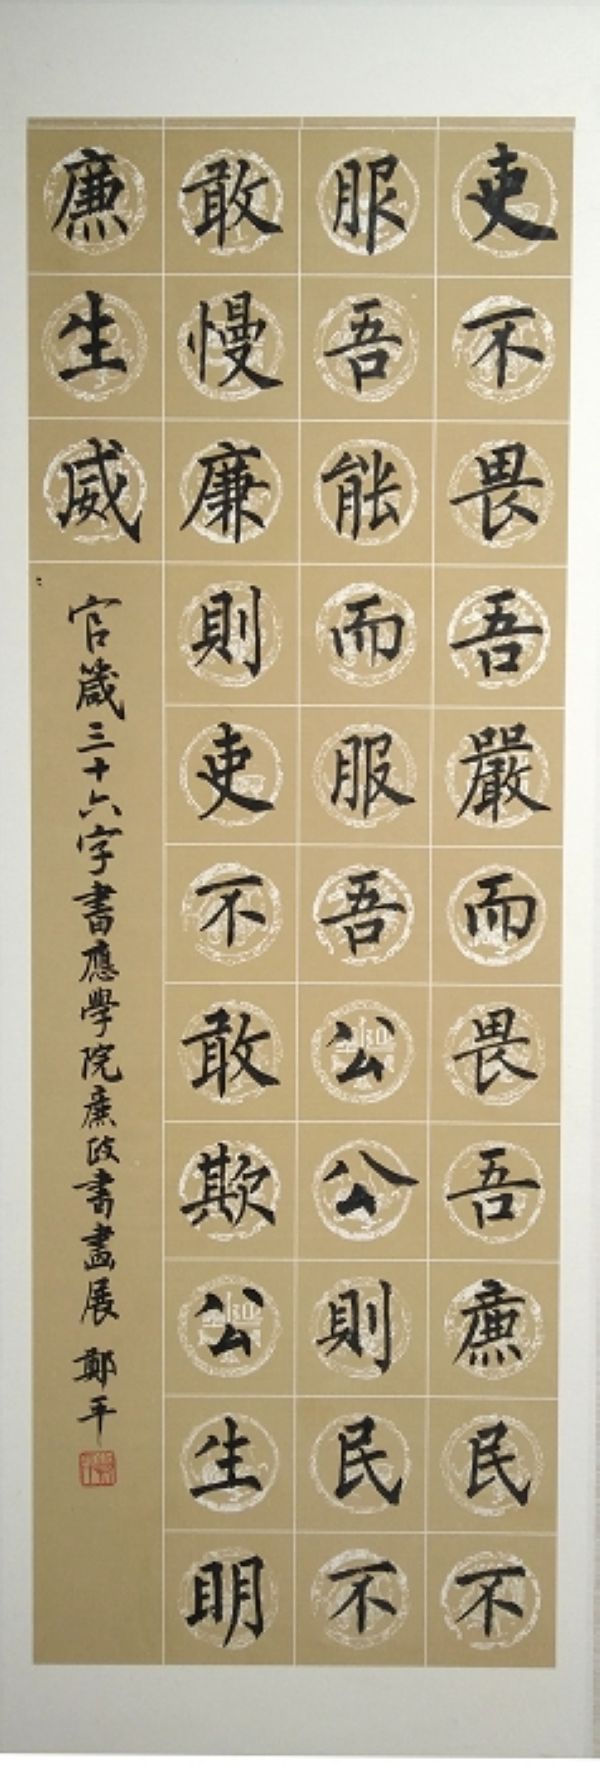 吏不畏吾嚴而畏吾廉民不
服吾能而服吾公公則民不
敢慢廉則吏不敢欺公生明
廉生威
官箴三十六字書應學院廉政書畫展 鄭平